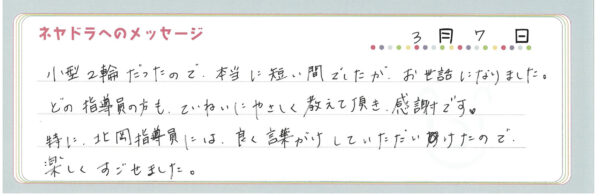 ネヤドラへのメッセージ
3月7日
小型2輪だったので、本当に短い間でしたが、お世話になりました。
どの指導員の方も、ていねいにやさしく教えて頂き、感謝です。
特に、北岡指導員には、良く言葉がけしていただいけたので、
楽しくすごせました。